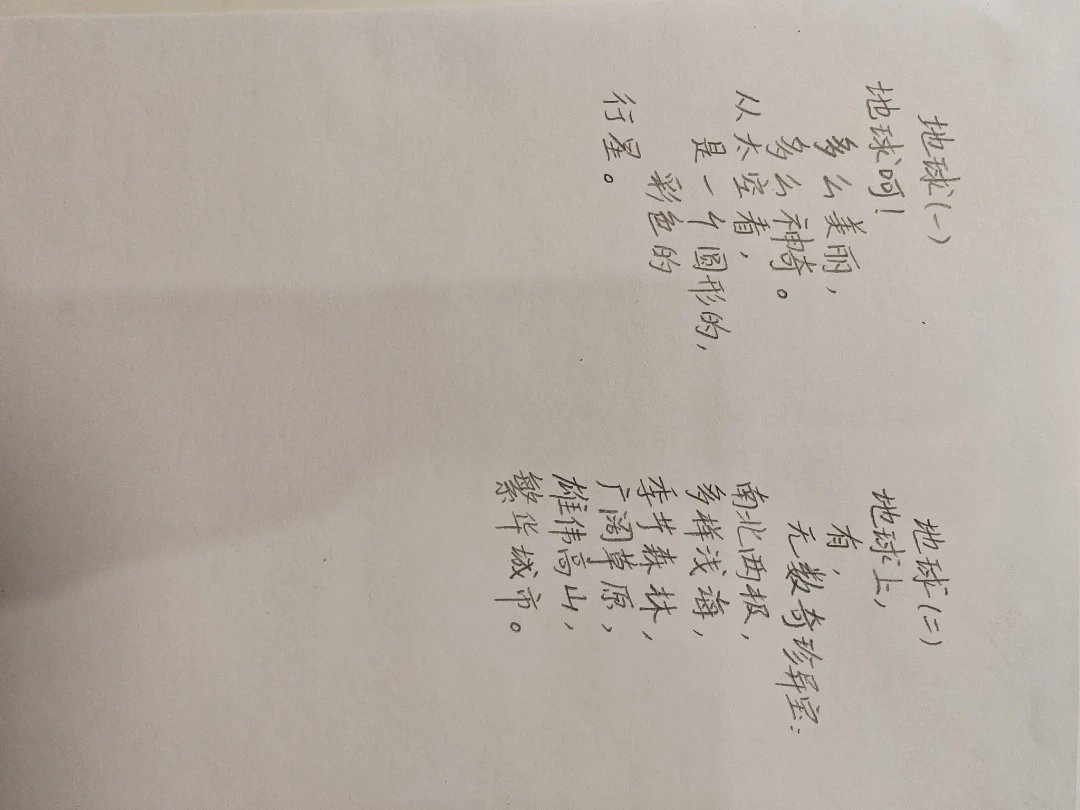 地球(一)
地球呵！
多么美丽，
多么神奇。
从太空看，
是一个圆形的，
彩色的
行星。
地球(二)
地球上，
有，
无数奇珍异宝：
南北两极，
多样浅海，
森林，
广阔草原，
雄伟高山，
繁华城市。